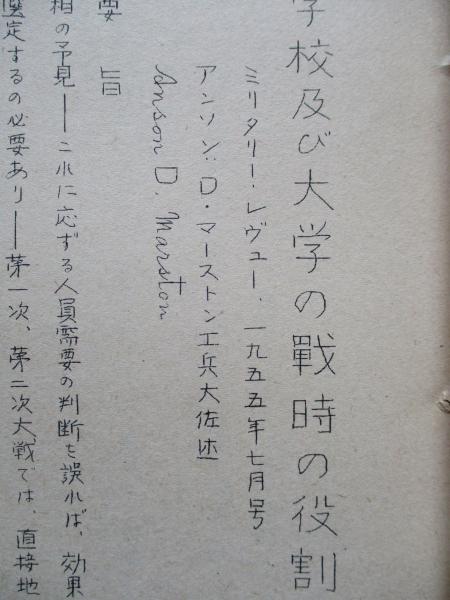 学校及び大学の戰時の役割
ミリタリー・レヴュー、一九五五年七月号
アンソン・D・マーストン工兵大佐述
Anson D. Marston
要旨
相の予見――これに応ずる人員需要の判断を誤れば、効果
選定するの必要あり――第一次、第二次大戦では、直接地